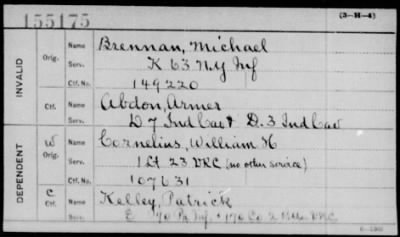 155175 (3-H-4)
INVALID
Orig. Name Brennan, Michael
Serv. K 63 N.Y Inf
Ctf. No. 149220
Ctf. Name Abdon, Armer
Serv. D 7 Ind Cav & D. 3 Ind Cav
DEPENDENT
W Orig. Name Cornelius, William H
Serv. 1 Lt 23 VRC (no other service)
Ctf. No. 107631
C Ctf. Name Kelley, Patrick
Serv. E 70 Pa Inf. + 170 Co 2 Batt VRC